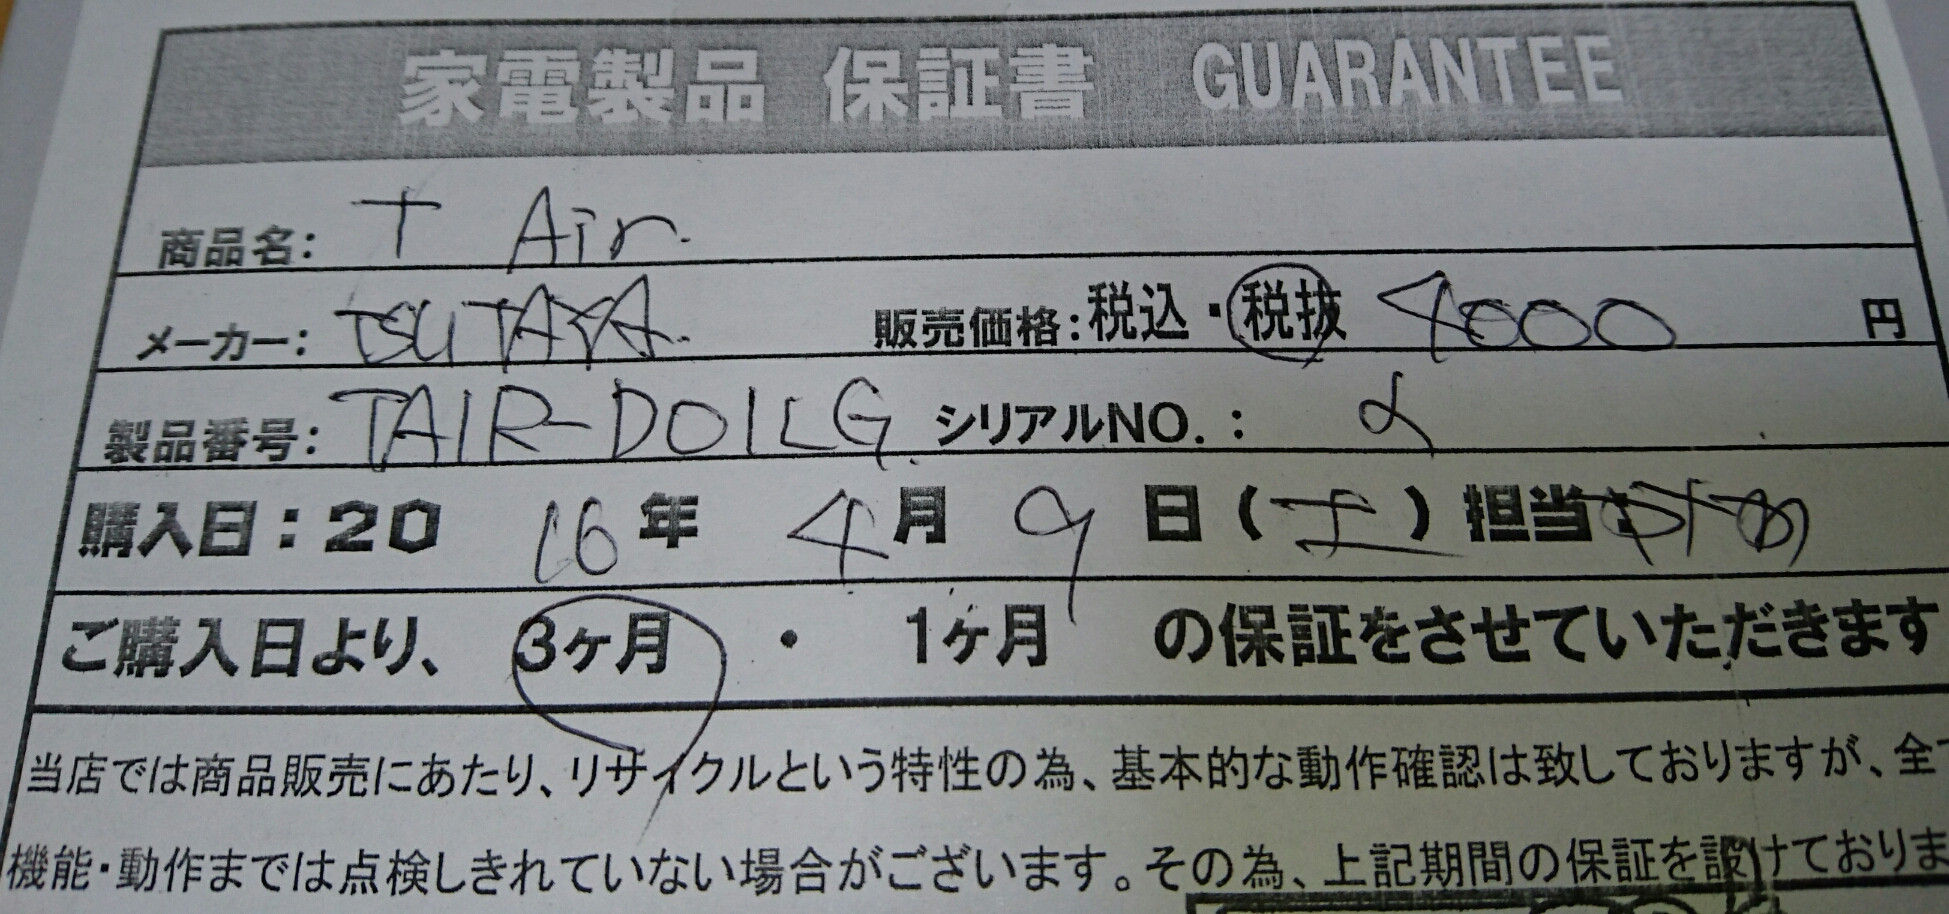 家電製品 保証書 GUARANTEE
商品名: T Air.
メーカー: TSUTAYA. 販売価格:税込・税抜 4000 円
製品番号: TAIR-D01LG シリアルNO.:
購入日:20 16年 4月 9日(土)担当:
ご購入日より、 3ヶ月 ・ 1ヶ月 の保証をさせていただきます
当店では商品販売にあたり、リサイクルという特性の為、基本的な動作確認は致しておりますが、全
機能・動作までは点検しきれていない場合がございます。その為、上記期間の保証を設けておりま